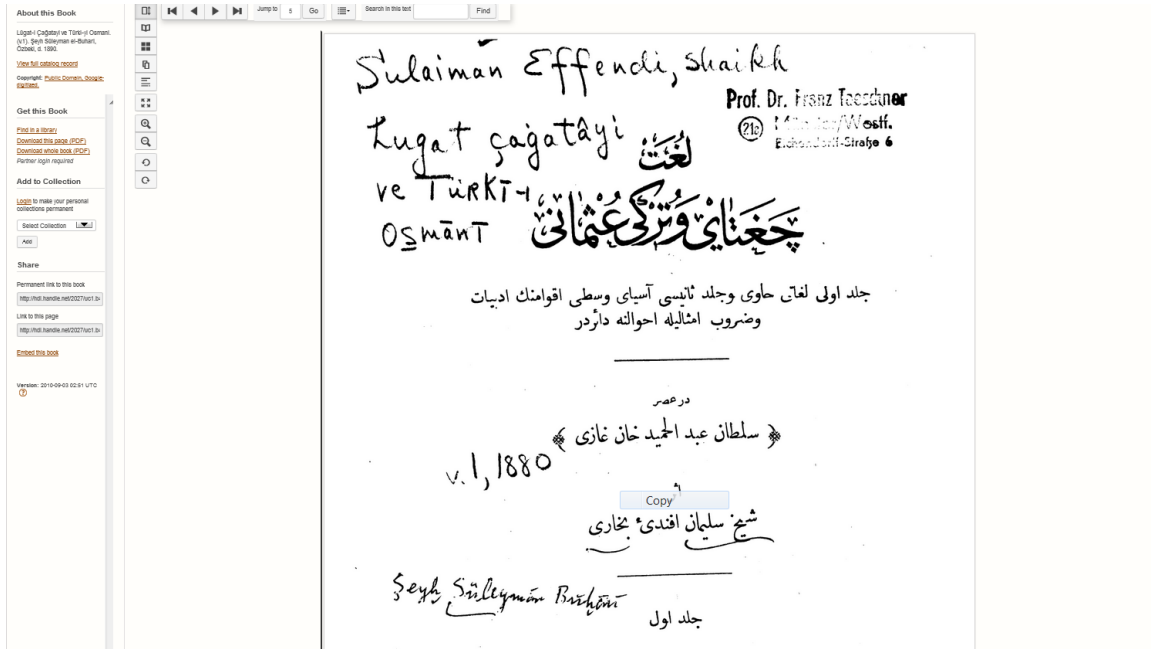 About this Book
Lûgat-i Çağatayi ve Türki-yi Osmani. (v.1). Şeyh Süleyman el-Buhari, Özbeki, d. 1890.
View full catalog record
Copyright: Public Domain, Google-digitized.
Get this Book
Find in a library
Download this page (PDF)
Download whole book (PDF)
Partner login required
Add to Collection
Login to make your personal collections permanent
Select Collection
Add
Share
Permanent link to this book
http://hdl.handle.net/2027/uc1.b
Link to this page
http://hdl.handle.net/2027/uc1.b
Embed this book
Version: 2010-09-03 02:51 UTC
?
Jump to 5 Go
Search in this text Find
Sulaimān Effendi, shaikh
Prof. Dr. Franz Taeschner
21a Münster/Westf.
Eichendorff-Straße 6
Lugat çağatâyi
ve Türkī-ı
Osmānī
لُغَتْ
چَغَتَايْ وَتُرْكِي عُثْمَانِي
جلد اولی لغاتی حاوی وجلد ثانیسی آسیای وسطی اقوامنك ادبیات
وضروب امثالیله احوالنه دائردر
در عصر
سلطان عبد الحمید خان غازی
v. 1, 1880
اثر
Copy
شیخ سلیمان افندیء بخاری
Şeyh Süleymān Buhārī
جلد اول